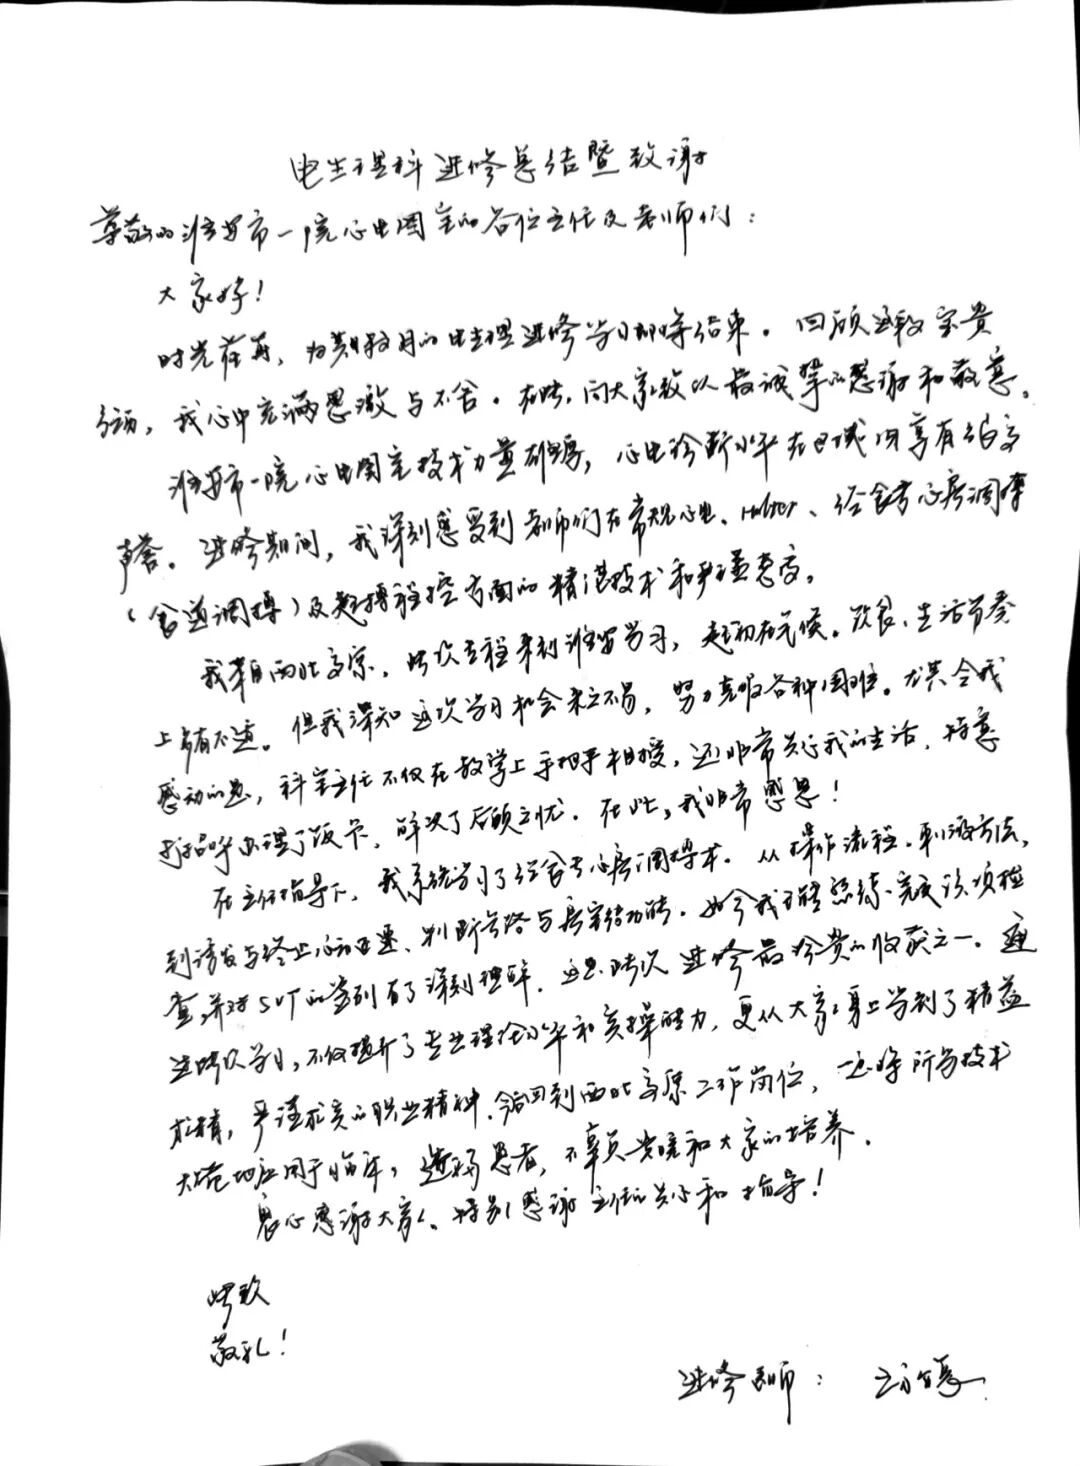 电生理科进修总结暨致谢
尊敬的淮安市一院心电图室的各位主任及老师们：
大家好！
时光荏苒，为期数月的电生理进修学习即将结束。回顾这段宝贵
经历，我心中充满感激与不舍。在此，向大家致以最诚挚的感谢和敬意。
淮安市一院心电图室技术力量雄厚，心电诊断水平在区域内享有的高
声誉。进修期间，我深刻感受到老师们在常规心电、Holter、经食管心房调搏
（食道调搏）及起搏程控方面的精湛技术和严谨态度。
我来自西北高原，此次专程来到淮安学习，起初在气候、饮食、生活节奏
上多有不适。但我深知这次学习机会来之不易，努力克服各种困难。尤其令我
感动的是，科室主任不仅在教学上手把手相授，还非常关心我的生活，特意
打招呼办理了饭卡，解决了后顾之忧。在此，我非常感恩！
在主任指导下，我系统学习了经食管心房调搏术。从操作流程、刺激方法，
到诱发与终止心动过速、判断旁路与房室结功能。如今我能熟练完成该项检
查，并对SVT的鉴别有了深刻理解，这是此次进修最珍贵的收获之一。通
过此次学习，不仅提升了专业理论水平和实操能力，更从大家身上学到了精益
求精，严谨求实的职业精神。今后回到西北高原工作岗位，一定将所学技术
规范地应用于临床，造福患者，不辜负贵院和大家的培养。
衷心感谢大家、特别感谢主任的关心和指导！
此致
敬礼！
进修医师：